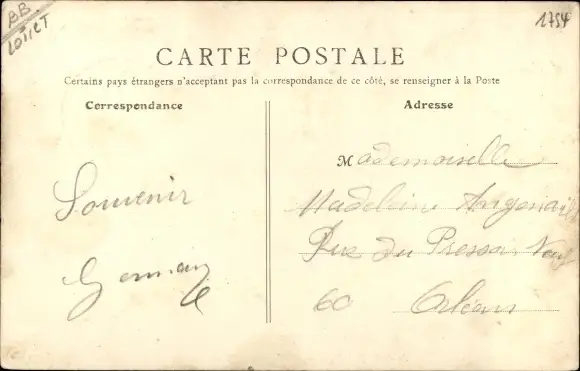 BB
LOIRET
1754
CARTE POSTALE
Certains pays étrangers n'acceptant pas la correspondance de ce côté, se renseigner à la Poste
Correspondance
Souvenir
Germain
Adresse
Mademoiselle
Madeleine
Rue du Pressoir Neuf
60 Orléans